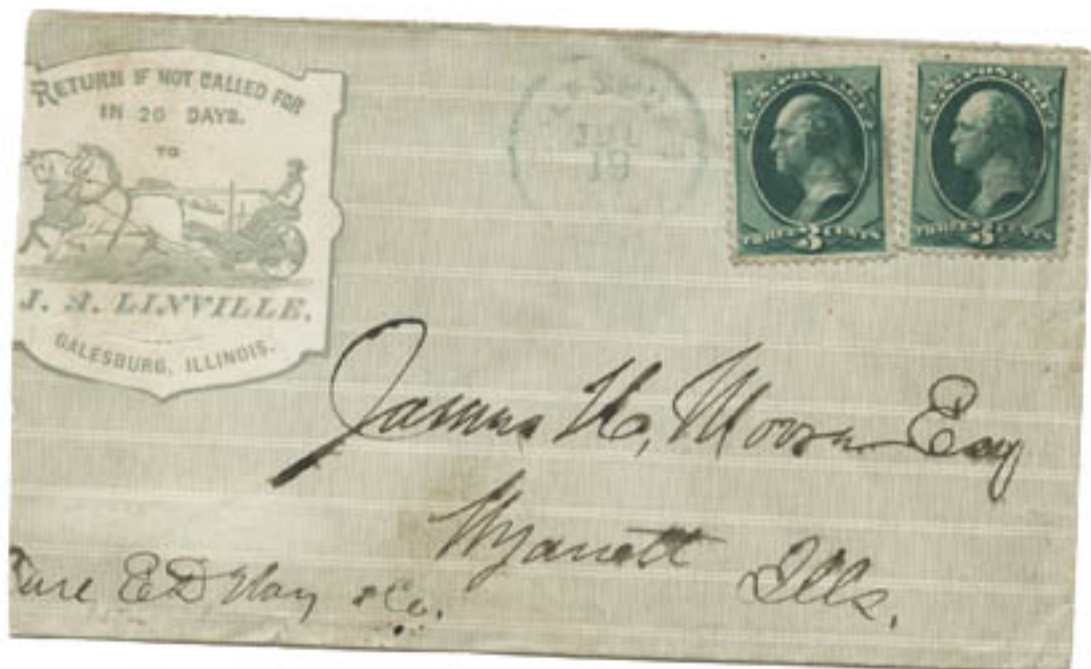 RETURN IF NOT CALLED FOR
IN 20 DAYS.
TO
J. A. LINVILLE,
GALESBURG, ILLINOIS.
JUL
19
U.S. POSTAGE
THREE 3 CENTS
U.S. POSTAGE
THREE 3 CENTS
James H, Moore Esq
Wyanett Ills.
Care E D Way & Co.